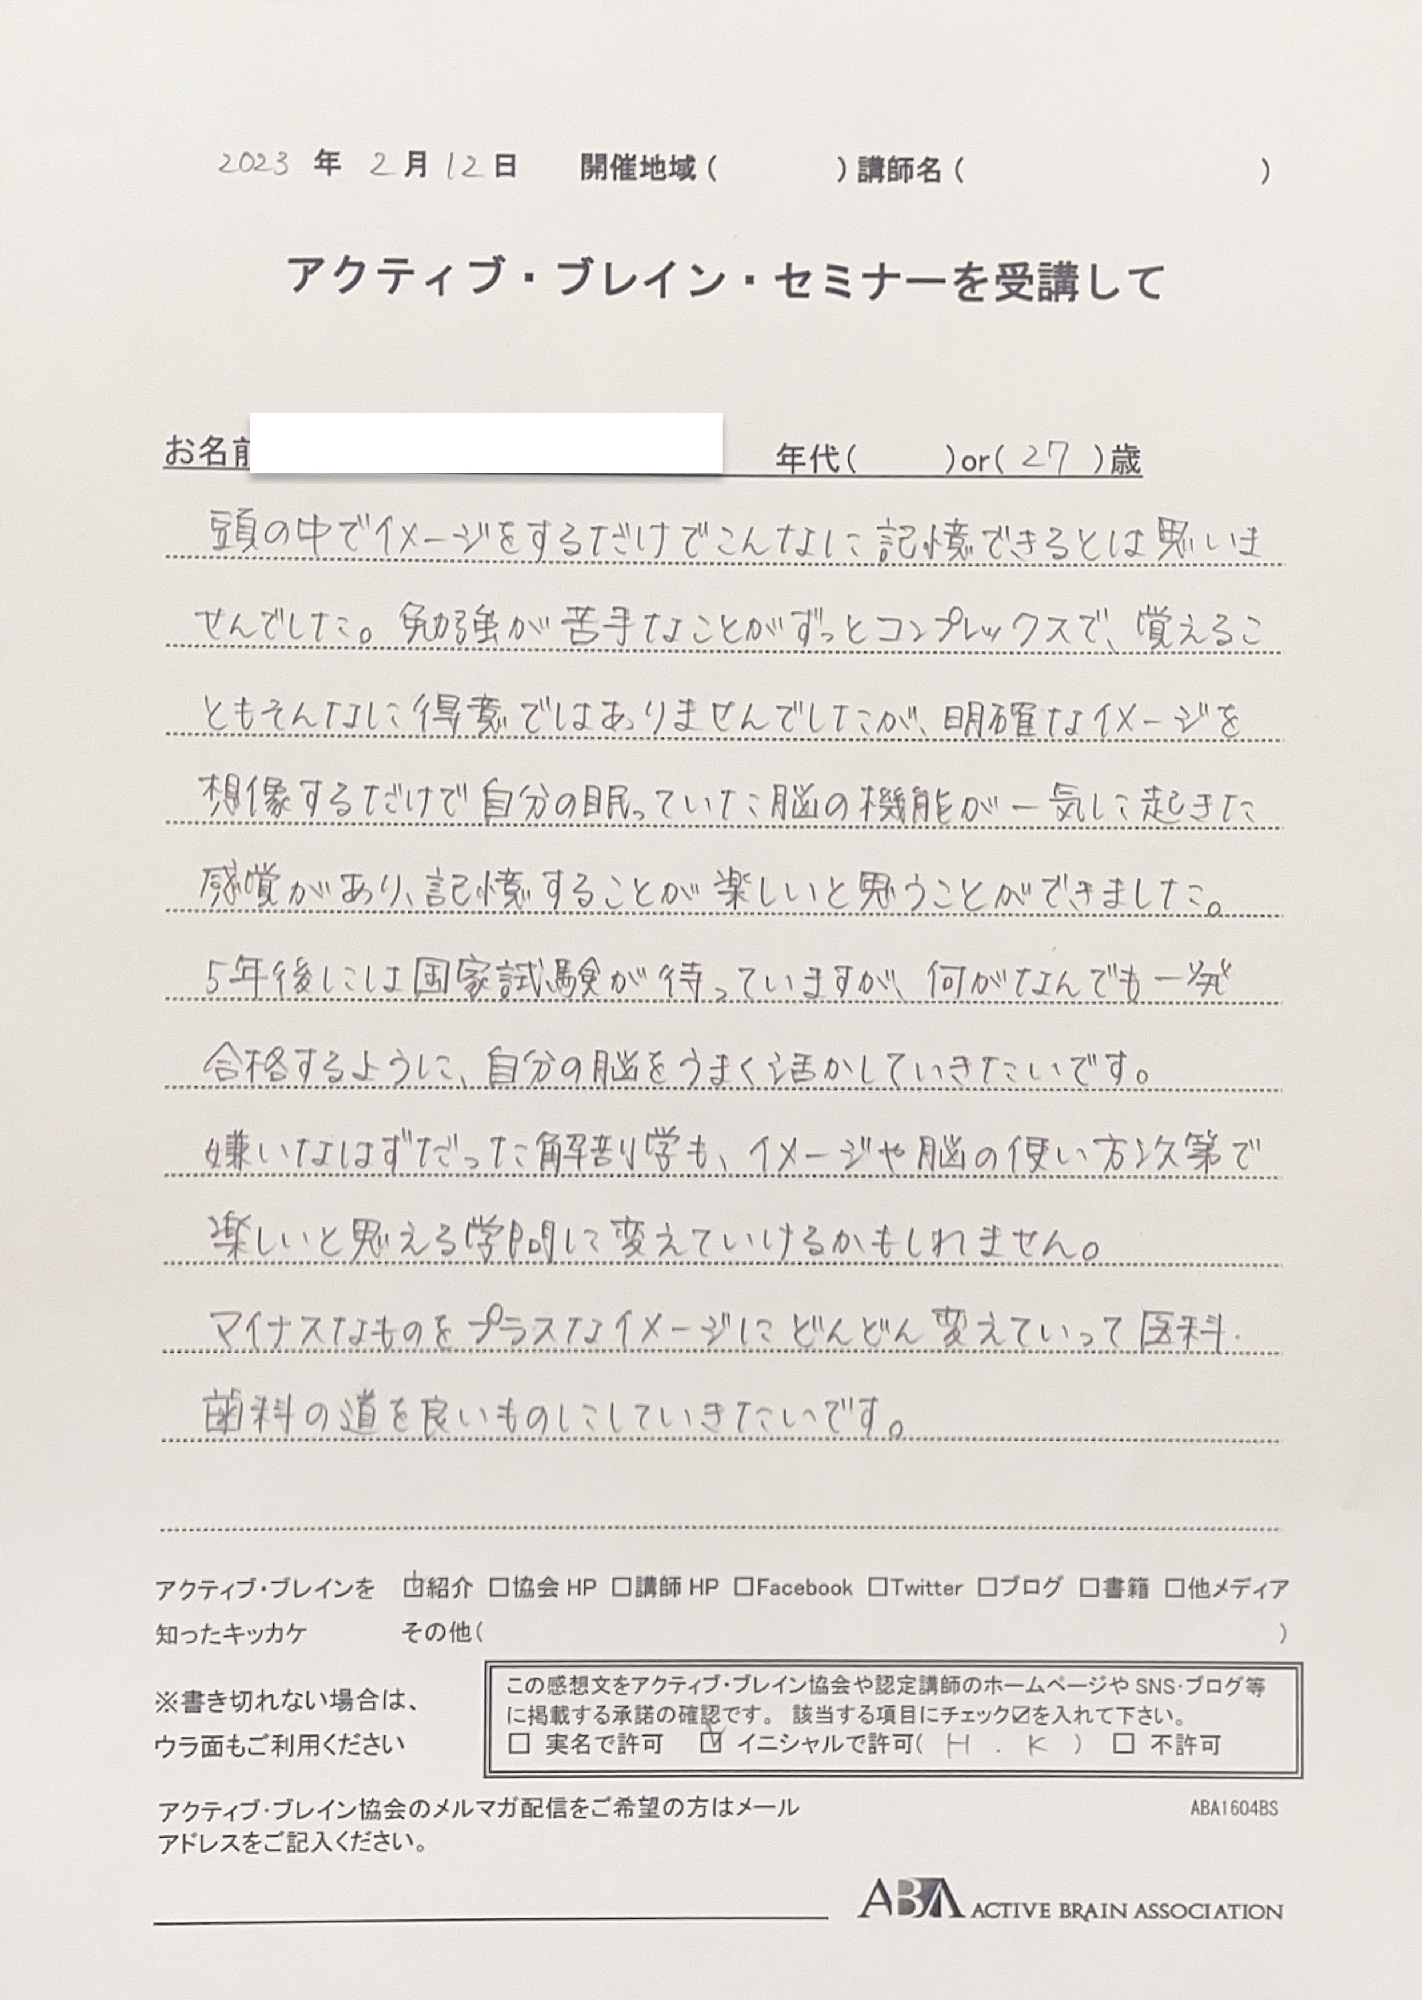 2023 年 2 月 12 日 開催地域 ( ) 講師名 ( )
アクティブ・ブレイン・セミナーを受講して
お名前 年代( )or( 27 )歳
頭の中でイメージをするだけでこんなに記憶できるとは思いま
せんでした。勉強が苦手なことがずっとコンプレックスで、覚えるこ
ともそんなに得意ではありませんでしたが、明確なイメージを
想像するだけで自分の眠っていた脳の機能が一気に起きた
感覚があり、記憶することが楽しいと思うことができました。
5年後には国家試験が待っていますが、何がなんでも一発
合格するように、自分の脳をうまく活かしていきたいです。
嫌いなはずだった解剖学も、イメージや脳の使い方次第で
楽しいと思える学問に変えていけるかもしれません。
マイナスなものをプラスなイメージにどんどん変えていって医科・
歯科の道を良いものにしていきたいです。
アクティブ・ブレインを ☑紹介 □協会 HP □講師 HP □Facebook □Twitter □ブログ □書籍 □他メディア
知ったキッカケ その他( )
※書き切れない場合は、
ウラ面もご利用ください
この感想文をアクティブ・ブレイン協会や認定講師のホームページや SNS・ブログ等
に掲載する承諾の確認です。 該当する項目にチェック☑を入れて下さい。
□ 実名で許可 ☑ イニシャルで許可( H . K ) □ 不許可
アクティブ・ブレイン協会のメルマガ配信をご希望の方はメール
アドレスをご記入ください。
ABA1604BS
ABA ACTIVE BRAIN ASSOCIATION